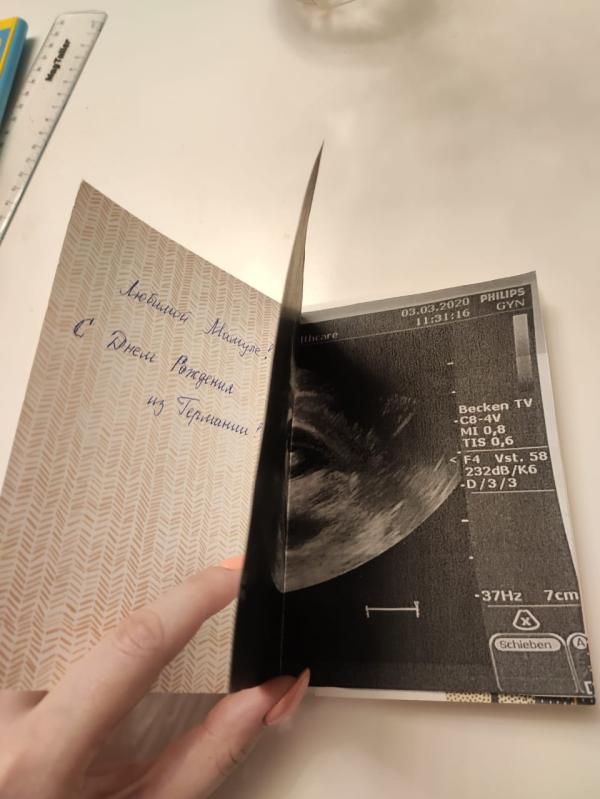 MagTaller
Любимой Мамуле!
С Днем Рождения
из Германии!
lthcare
03.03.2020 PHILIPS
11:31:16 GYN
Becken TV
C8-4V
MI 0,8
TIS 0,6
< F4 Vst. 58
232dB/K6
D/3/3
37Hz 7cm
x
Schieben A